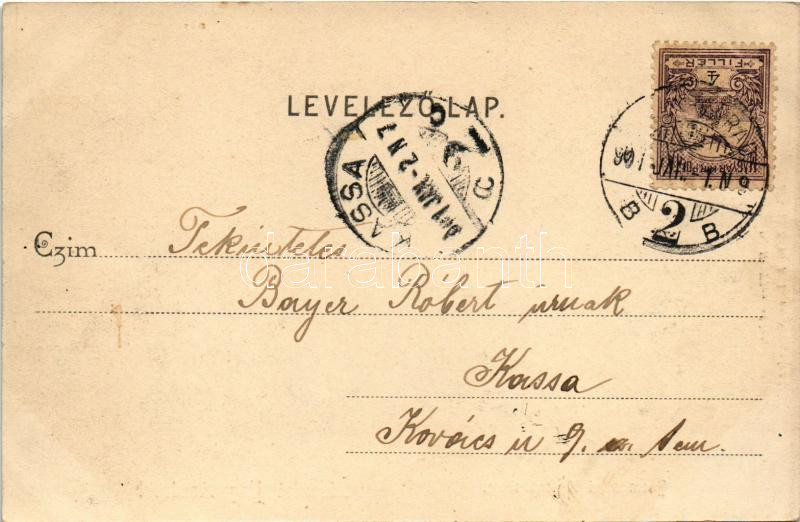 LEVELEZŐ-LAP.
FILLÉR
4
MAGYAR KIR. POSTA
901 JAN
2
B B
KASSA
901 JAN -2 N 7
Czim Tekintetes
Bayer Róbert urnak
Kassa
Kovács u 9.
darabanth